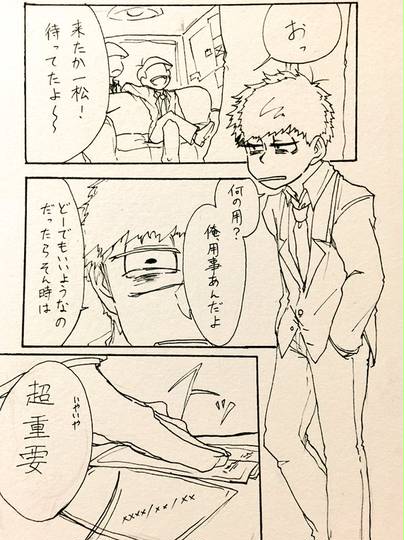 おっ
来たか一松!
待ってたよ〜〜
何の用?
俺用事あんだよ
どーでもいいようなの
だったらそん時は
いやいや
超重要
xxxx/xx/xx